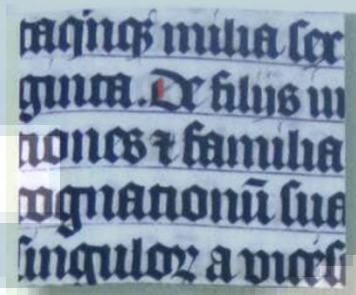 taqꝫ milia sex
ginta. De filijs iu
tiones ⁊ familia
cognationū sua
singuloꝝ a vices